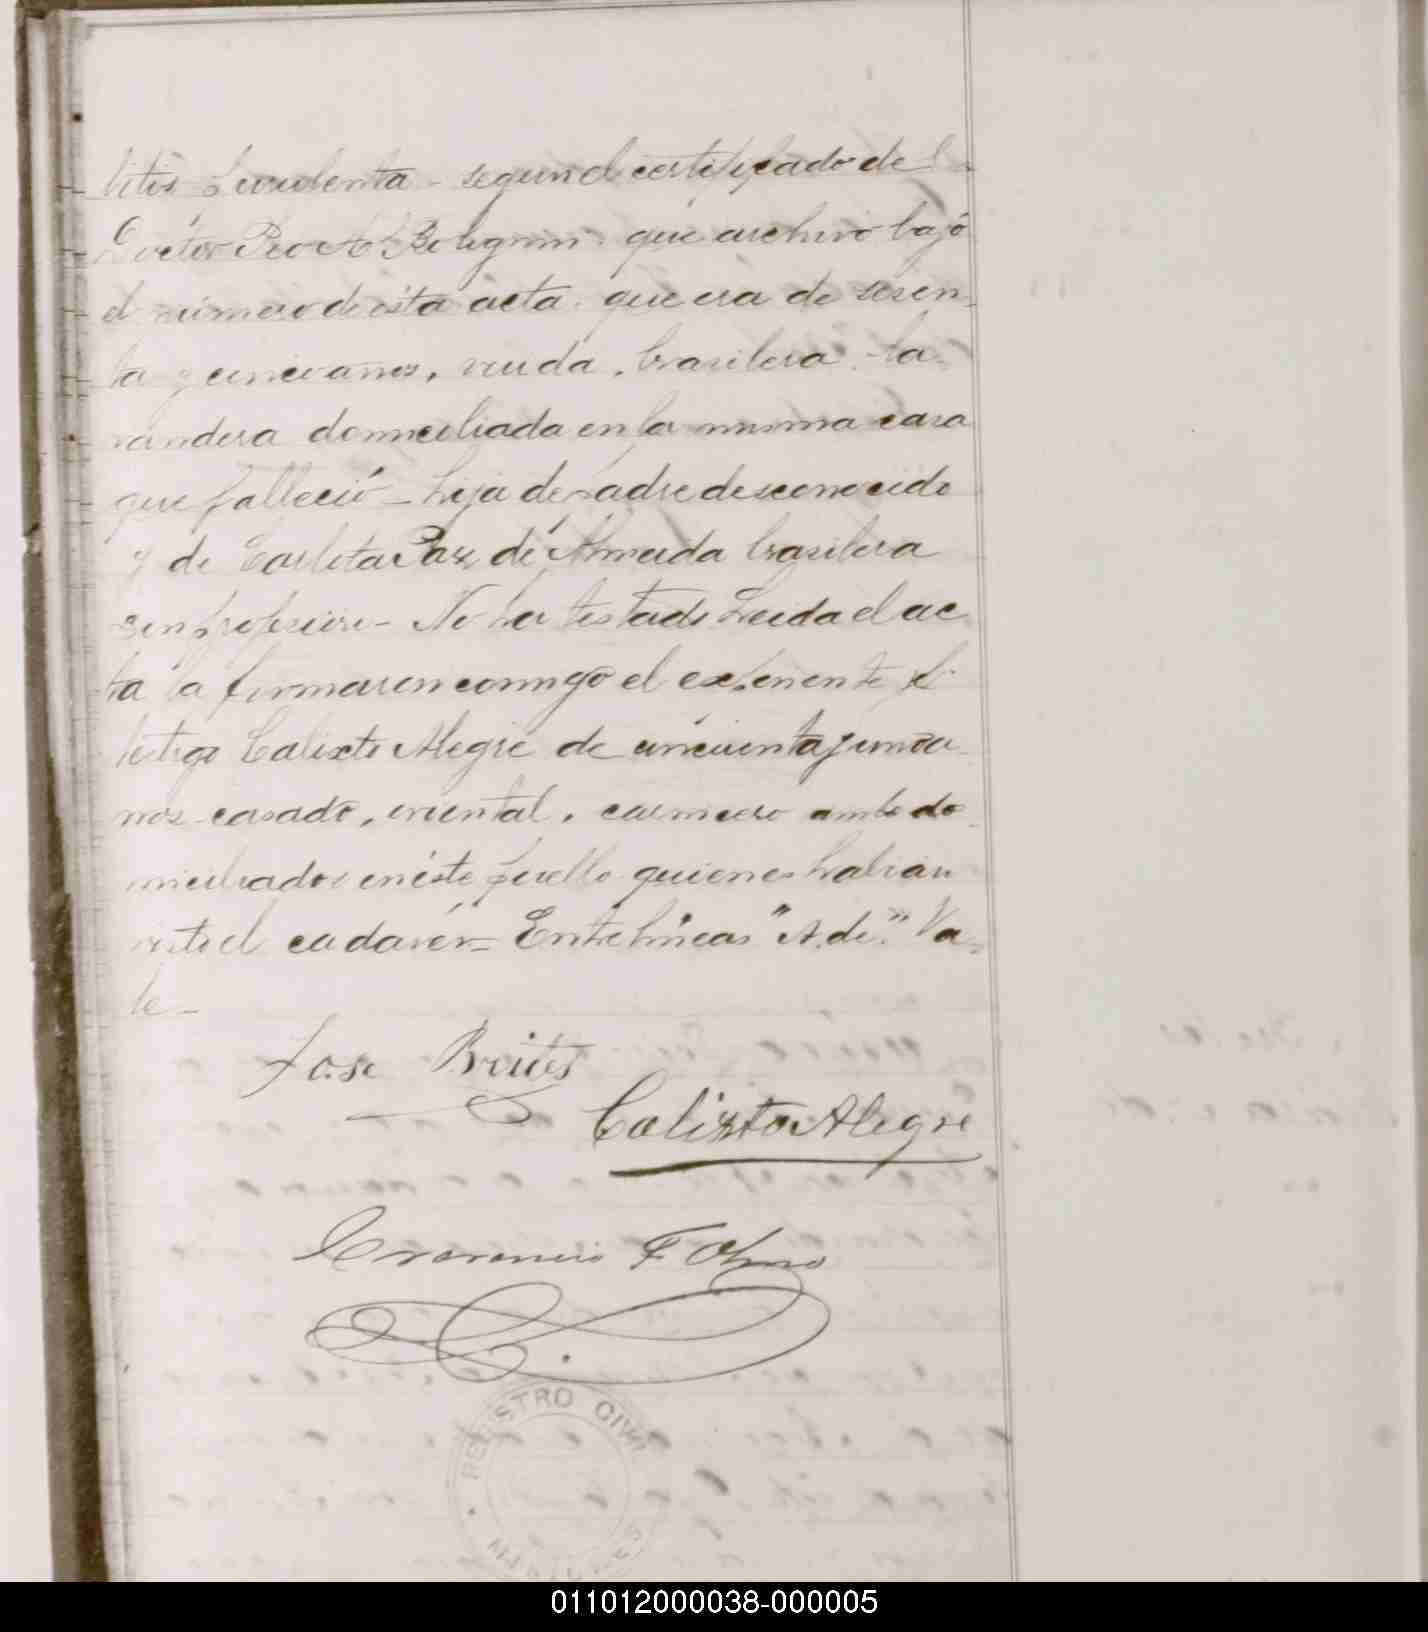 litis purulenta - segun el certificado del
Doctor Pio A. que archivo bajo
el numero de ésta acta. que era de sesen-
ta y cinco años, viuda, brasilera. la-
vandera domiciliada en la misma casa
que falleció - hija de padre desconocido
y de Carlota Paz de Almeida brasilera
sin profesion - No ha testado Leida el ac
ta la firmaron conmigo el exponente y el
testigo Calixto Alegre de cincuenta y un a
ños casado, oriental, carnicero ambos do
miciliados en éste pueblo quienes habian
visto el cadaver = Entrelineas "A. de" Va-
le -
Jose Brites
Calixto Alegre
F Olmo
REGISTRO CIVIL
011012000038-000005